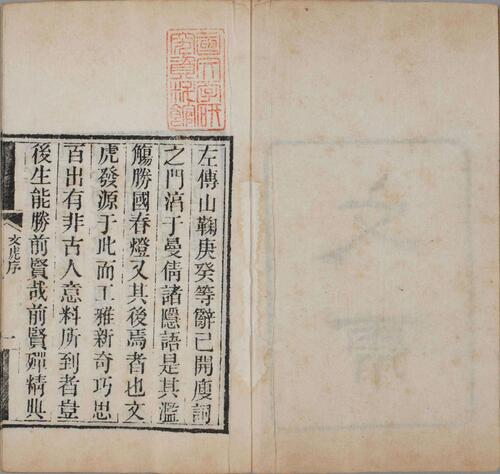 左傳山鞠庚癸等辭已開廋詞
之門濫于曼倩諸隱語是其濫
觴勝國春燈又其後焉者也文
虎發源于此而工雅新奇巧思
百出有非古人意料所到者豈
後生能勝前賢哉前賢殫精典
文虎序
一
國文學研
究資料館
文
虎